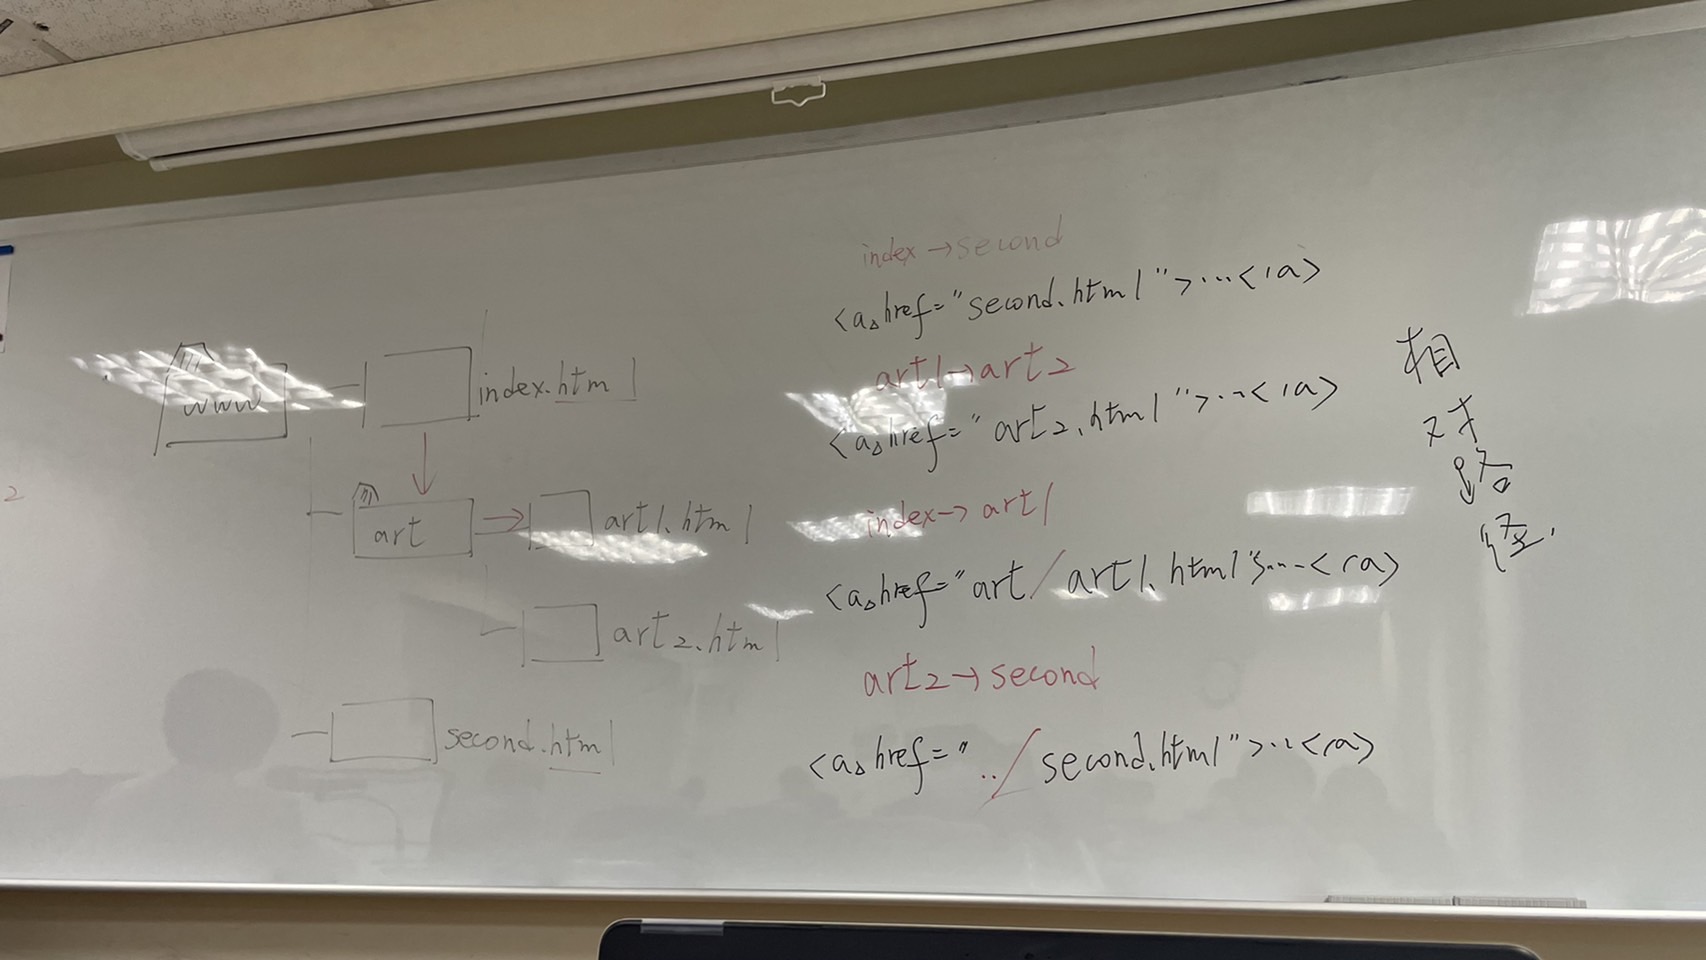 www
index.html
art
art1.html
art2.html
second.html
index→second
<a△href="second.html">...</a>
art1→art2
<a△href="art2.html">...</a>
index→art1
<a△href="art/art1.html">...</a>
art2→second
<a△href="../second.html">...</a>
相
对
路
径.
2